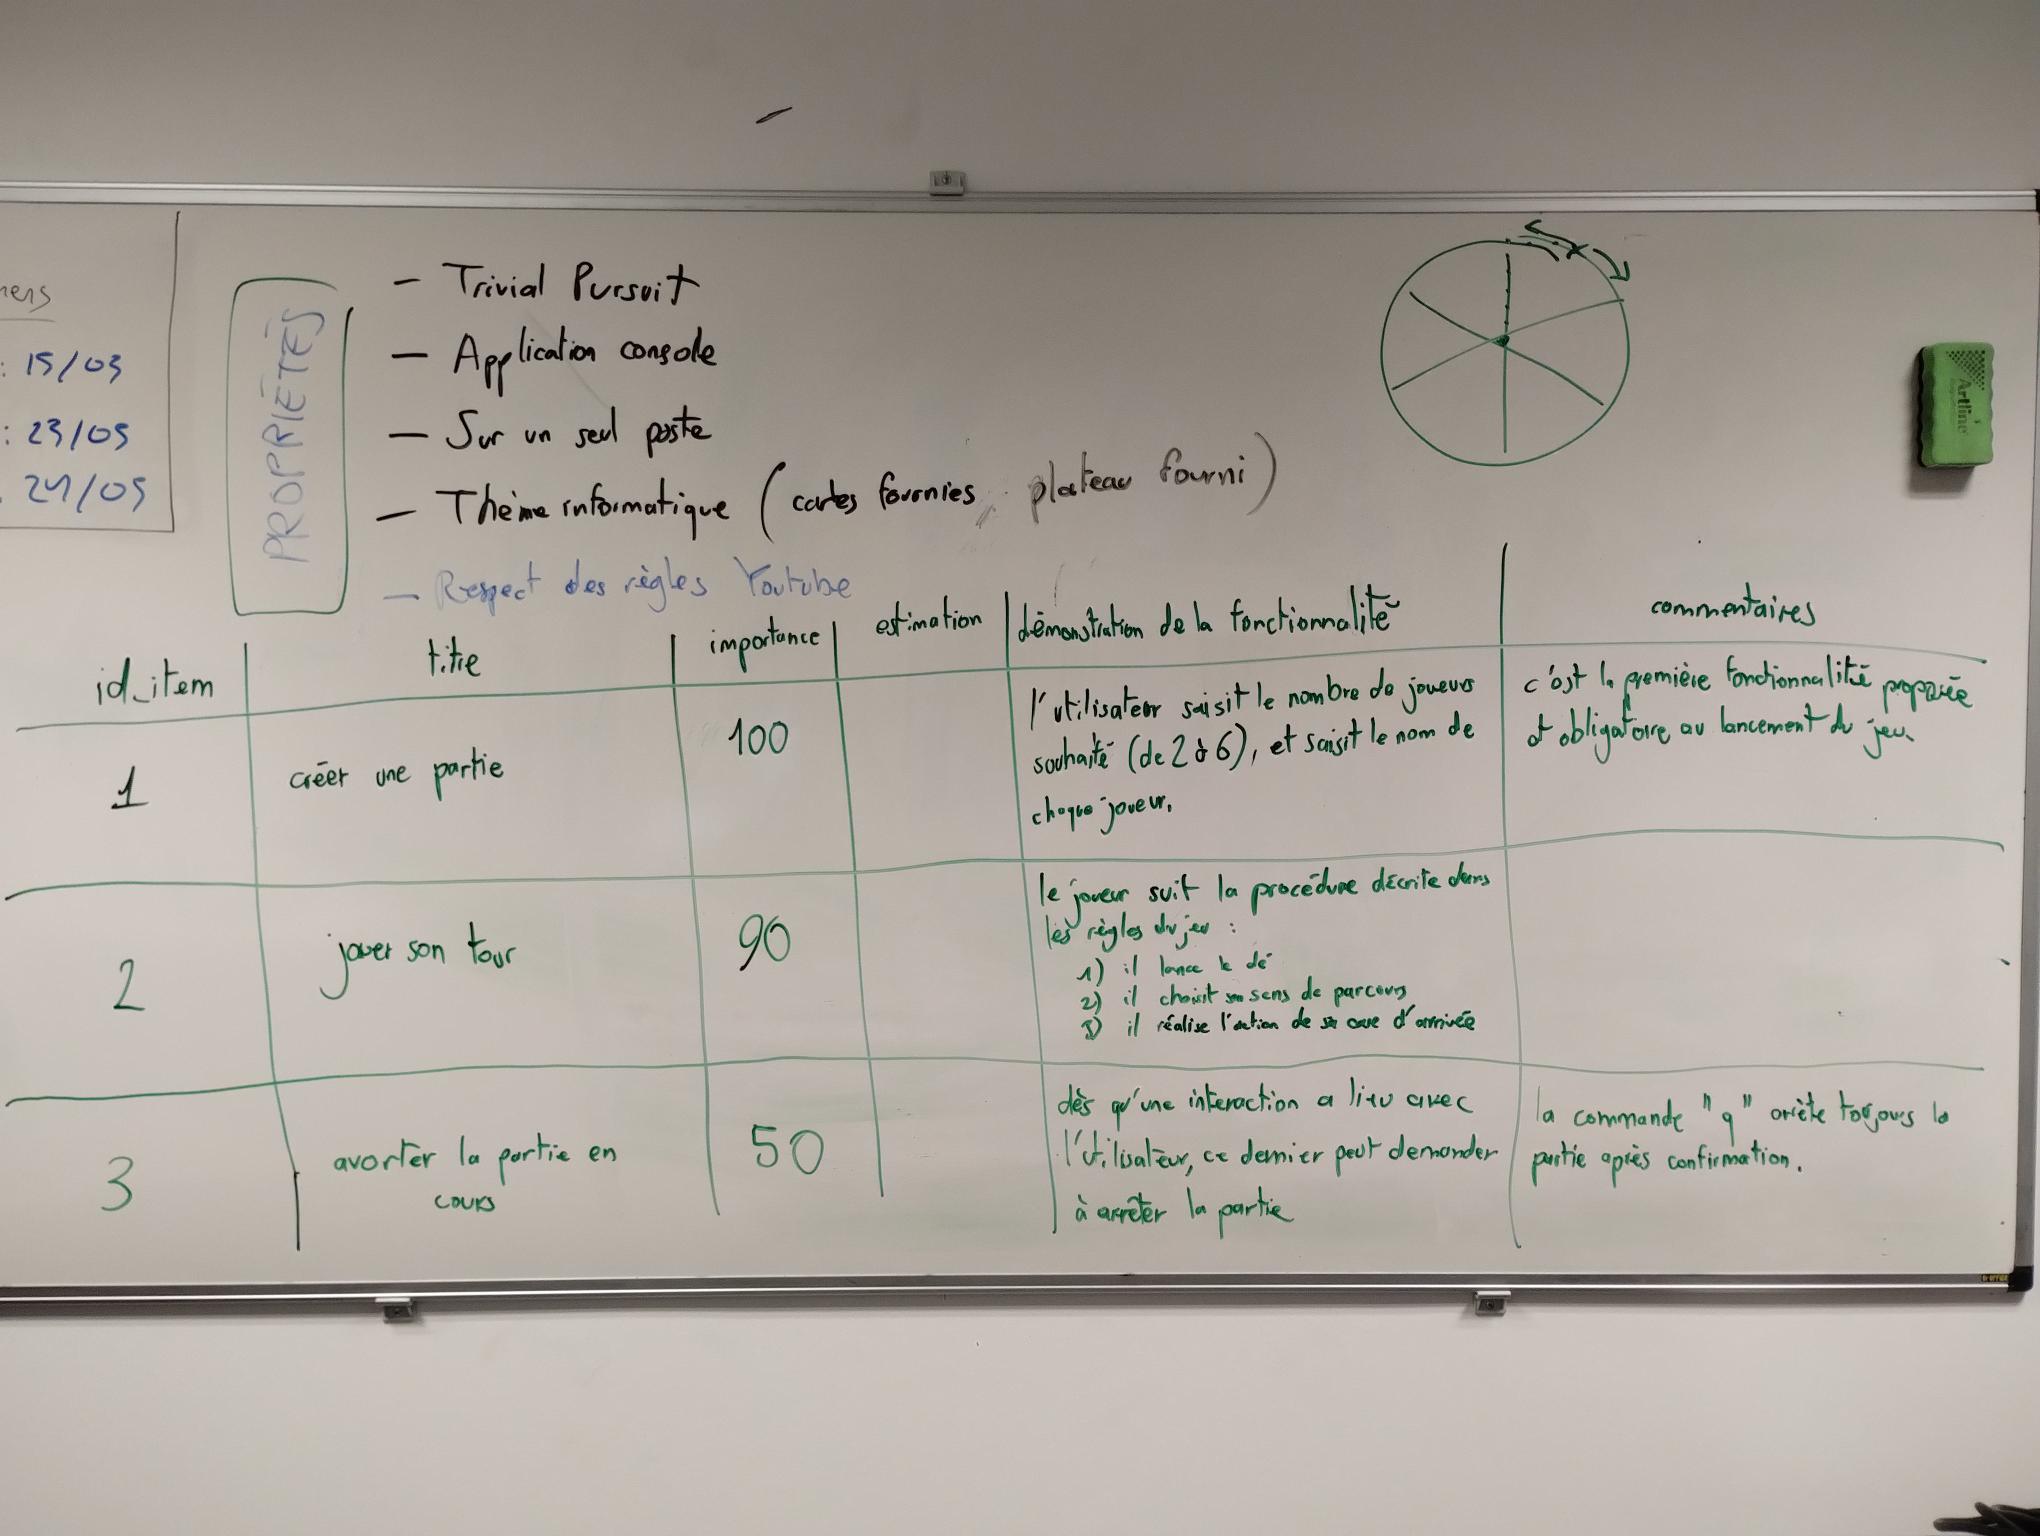 : 15/03
: 23/05
24/05
PROPRIÉTÉS
- Trivial Pursuit
- Application console
- Sur un seul poste
- Thème informatique (cartes fournies plateau fourni)
- Respect des règles Youtube
Artline
id_item
titre
importance
estimation
démonstration de la fonctionnalité
commentaires
1
créer une partie
100
l'utilisateur saisit le nombre de joueurs
souhaité (de 2 à 6), et saisit le nom de
chaque joueur.
c'est la première fonctionnalité proposée
et obligatoire au lancement du jeu.
2
jouer son tour
90
le joueur suit la procédure décrite dans
les règles du jeu :
1) il lance le dé
2) il choisit son sens de parcours
3) il réalise l'action de sa case d'arrivée
3
avorter la partie en
cours
50
dès qu'une interaction a lieu avec
l'utilisateur, ce dernier peut demander
à arrêter la partie
la commande "q" arrête toujours la
partie après confirmation.